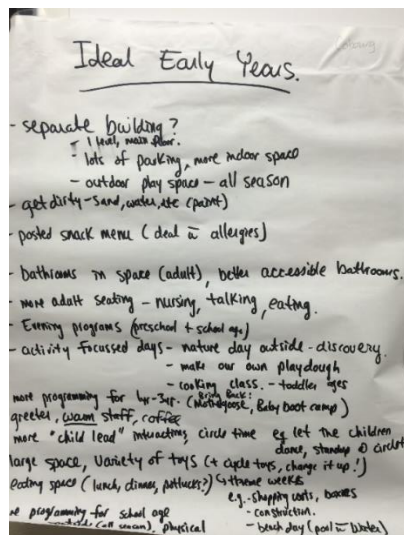 Ideal Early Years.
- separate building?
- 1 level, main floor.
- lots of parking, more indoor space
- outdoor play space - all season
- get dirty - Sand, water, etc (paint)
- posted snack menu (deal w allergies)
- bathrooms in space (adult), better accessible bathrooms.
- more adult seating - nursing, talking, eating.
- Evening programs (preschool + school age)
- activity focussed days - nature day outside - discovery.
- make our own playdough
- cooking class. - toddler ages
more programming for 1yr-3yr. (Bring Back: Mothergoose, Baby boot camp)
greeter, warm staff, coffee
more "child lead" interactions, circle time eg let the children
dance, standup @ circle
large space, Variety of toys (+ cycle toys, change it up!)
eating space (lunch, dinner, potlucks?) theme weeks
e.g. - shopping carts, boxes
- construction.
programming for school age
- beach day (pool w water)
(all season), physical